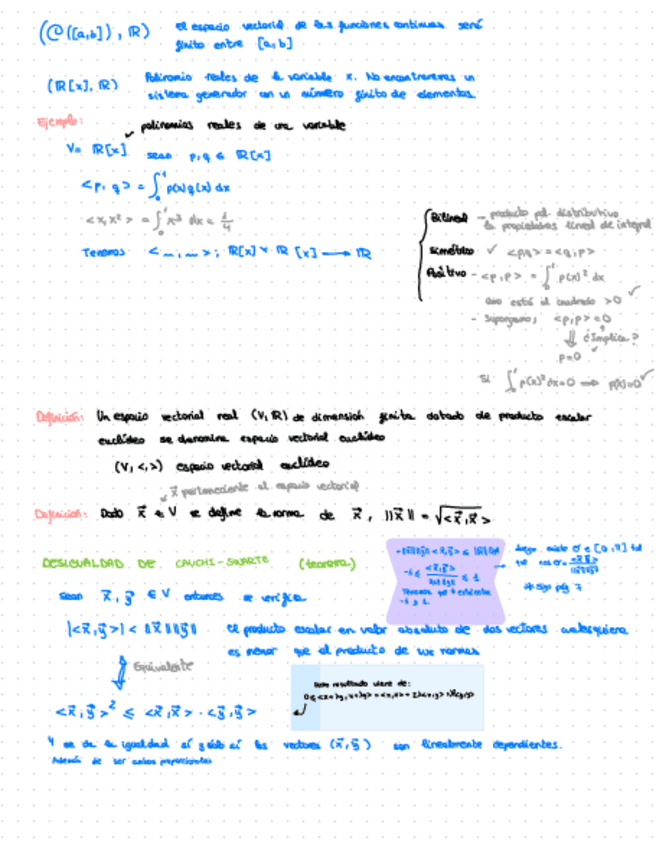 (C([a,b]), ℝ) el espacio vectorial de las funciones continuas será
finito entre [a,b]
(ℝ[x], ℝ) Polinomio reales de la variable x. No encontraremos un
sistema generador con un número finito de elementos
Ejemplo: polinomios reales de una variable
V= ℝ[x] sean p,q ∈ ℝ[x]
<p, q> = ∫₀¹ p(x)q(x) dx
<x, x²> = ∫₀¹ x³ dx = 1/4
Tenemos < ~, ~ >; ℝ[x] × ℝ[x] ⟶ ℝ
Bilineal - producto pol. distributivo
la propiedades lineal de integral
Simétrico ✓ <p,q> = <q,p>
Positivo - <p,p> = ∫₀¹ p(x)² dx
está al cuadrado >0 ✓
- Supongamos; <p,p> = 0
⇓ ¿Implica?
p=0 ✓
Si ∫₀¹ p(x)² dx=0 ⟹ p(x)=0 ✓
Definición: Un espacio vectorial real (V, ℝ) de dimensión finita dotado de producto escalar
euclídeo se denomina espacio vectorial euclídeo
(V, <,>) espacio vectorial euclídeo
x⃗ perteneciente al espacio vectorial
Definición: Dado x⃗ ∈ V se define la norma de x⃗, ||x⃗|| = √<x⃗,x⃗>
DESIGUALDAD DE CAUCHI-SWARTE (teorema)
-||x⃗||||y⃗|| ≤ <x⃗,y⃗> ≤ ||x⃗||||y⃗||
-1 ≤ <x⃗,y⃗> / ||x⃗||||y⃗|| ≤ 1
-1 y 1.
luego existe σ ∈ [0,π] tal
que cos σ = <x⃗,y⃗> / ||x⃗||||y⃗||
* Sigo pág 7
sean x⃗, y⃗ ∈ V entonces se verifica
|<x⃗,y⃗>| < ||x⃗|| ||y⃗|| el producto escalar en valor absoluto de dos vectores cualesquiera
es menor que el producto de sus normas
Equivalente
este resultado viene de:
<x⃗,y⃗>² ≤ <x⃗,x⃗> · <y⃗,y⃗>
Y se da la igualdad sí y sólo sí los vectores (x⃗, y⃗) son linealmente dependientes.
Además de ser ambos proporcionales